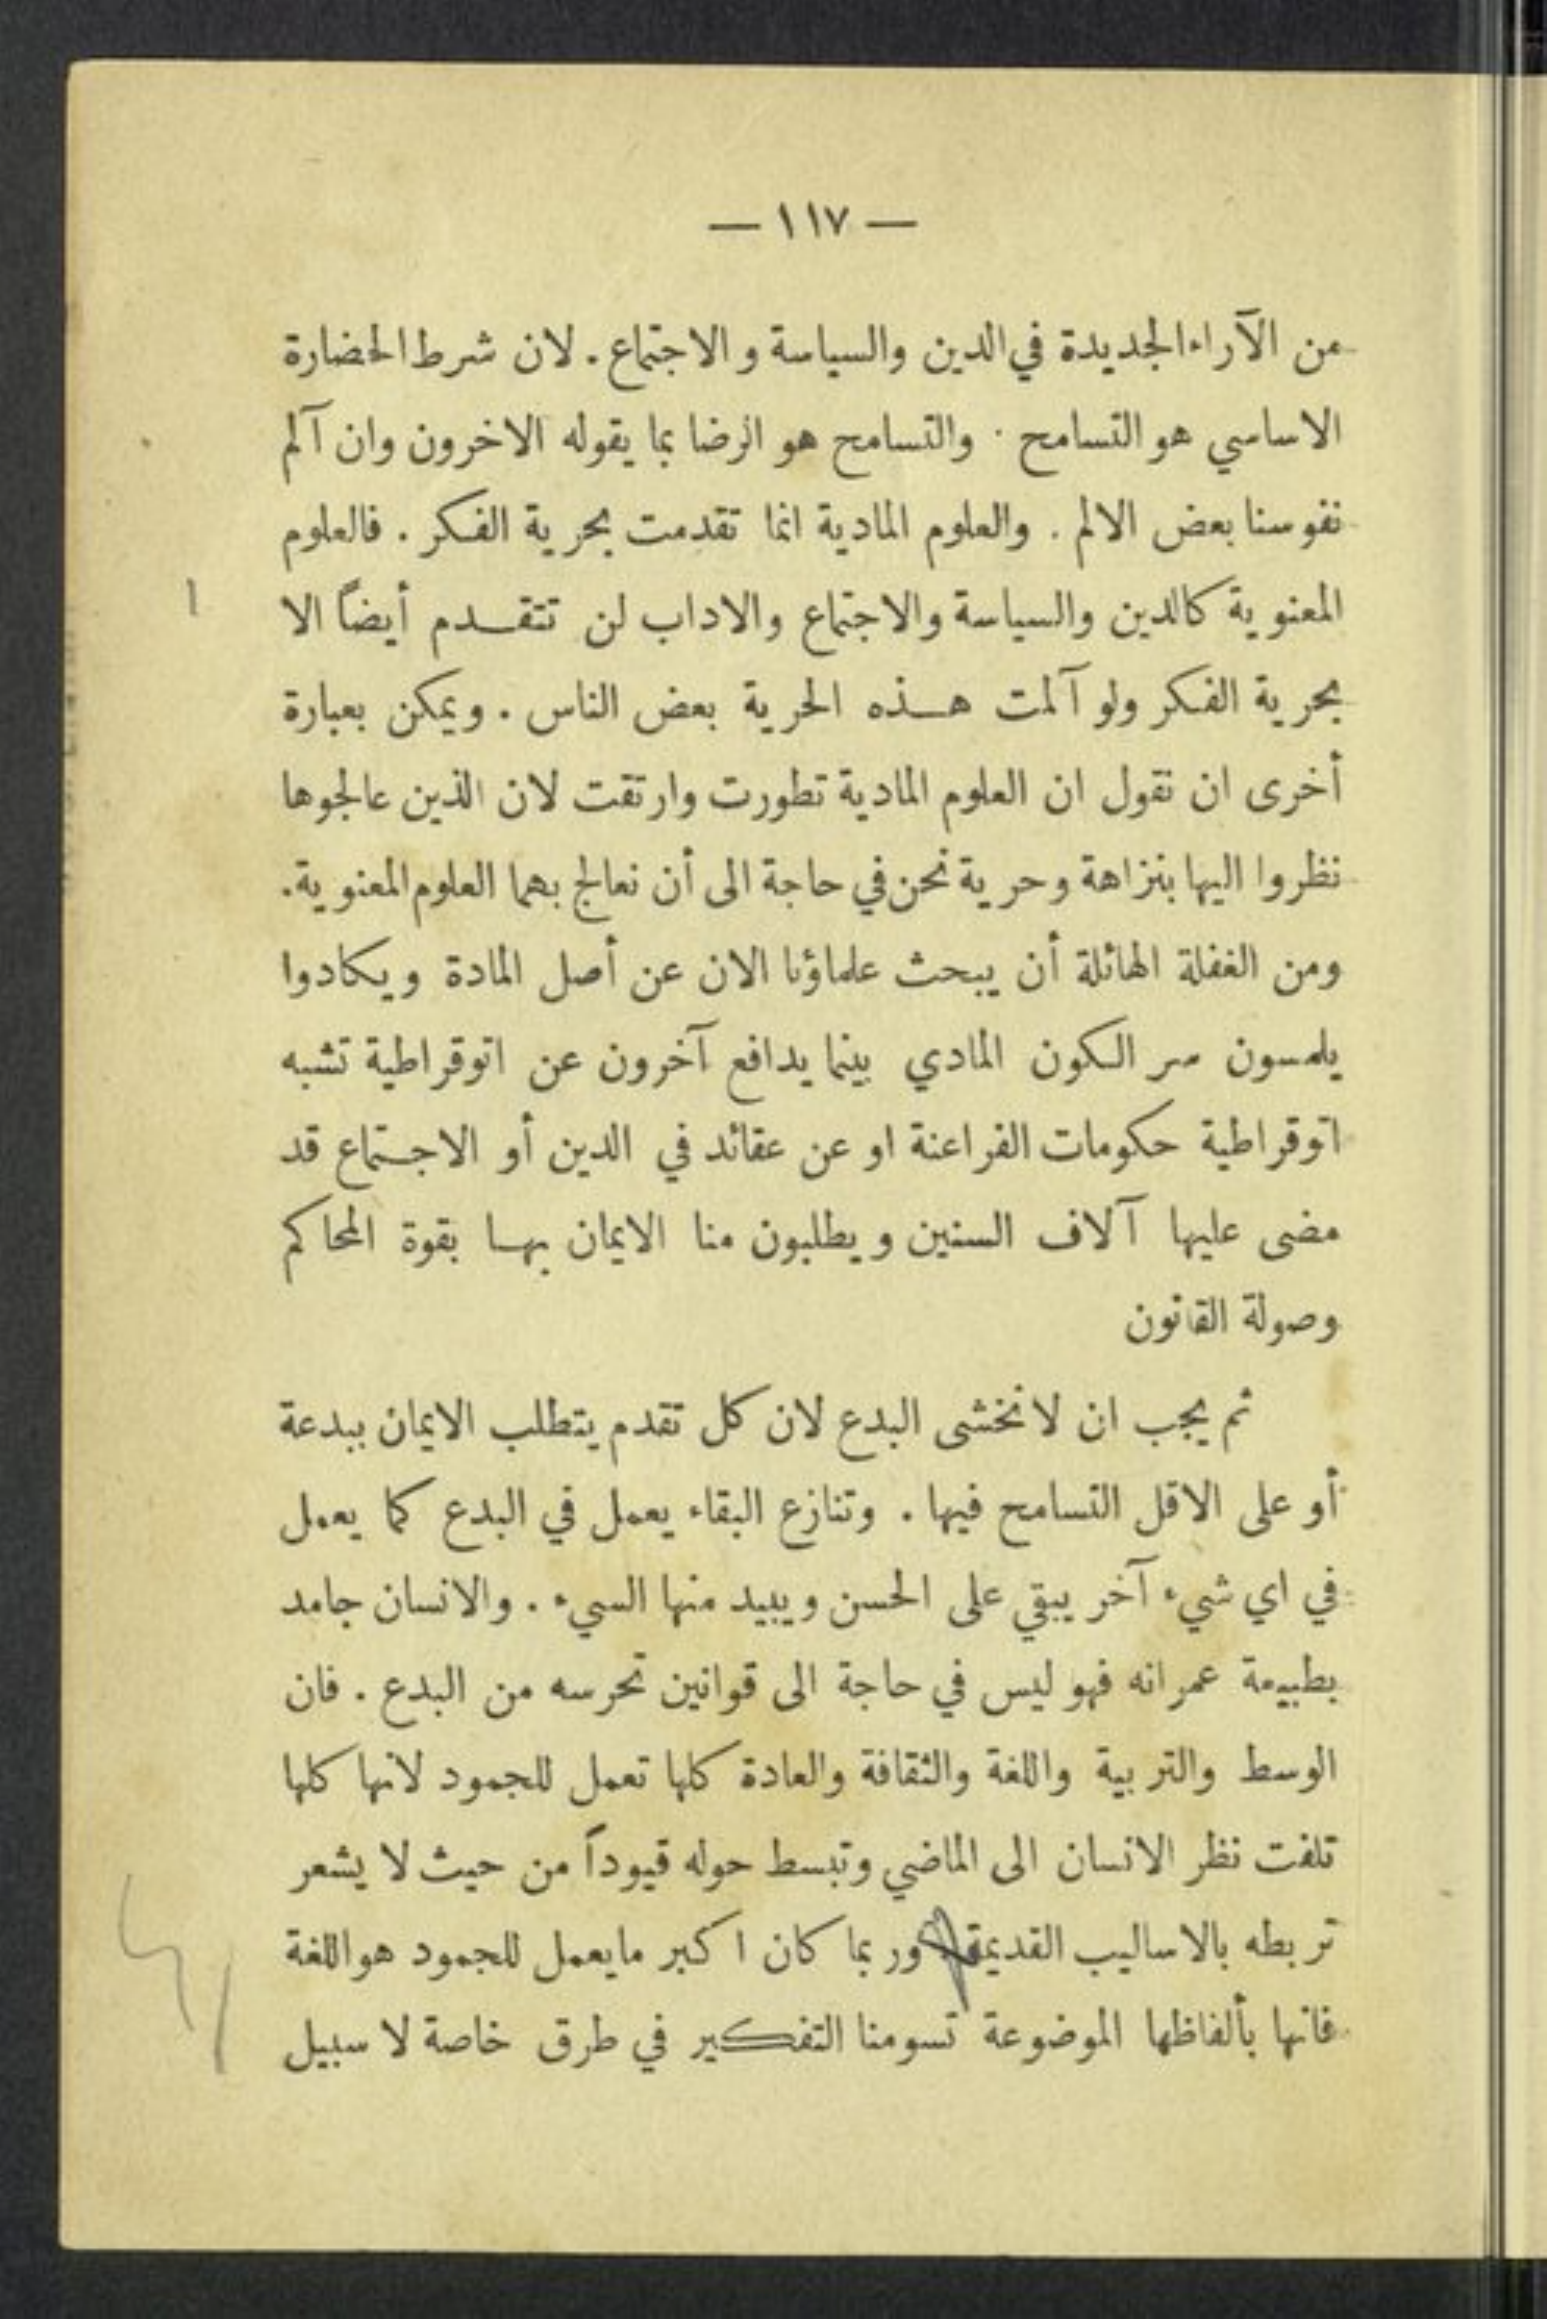 — ١١٧ —
من الآراء الجديدة في الدين والسياسة والاجتماع. لان شرط الحضارة
الاساسي هو التسامح . والتسامح هو الرضا بما يقوله الاخرون وان آلم
نفوسنا بعض الالم . والعلوم المادية انما تقدمت بحرية الفكر . فالعلوم
المعنوية كالدين والسياسة والاجتماع والاداب لن تتقدم أيضاً الا
بحرية الفكر ولو آلمت هذه الحرية بعض الناس . ويمكن بعبارة
أخرى ان نقول ان العلوم المادية تطورت وارتقت لان الذين عالجوها
نظروا اليها بنزاهة وحرية نحن في حاجة الى أن نعالج بهما العلوم المعنوية.
ومن الغفلة الهائلة أن يبحث علماؤنا الان عن أصل المادة ويكادوا
يلمسون سر الكون المادي بينما يدافع آخرون عن اتوقراطية تشبه
اتوقراطية حكومات الفراعنة او عن عقائد في الدين أو الاجتماع قد
مضى عليها آلاف السنين ويطلبون منا الايمان بها بقوة المحاكم
وصولة القانون
ثم يجب ان لانخشى البدع لان كل تقدم يتطلب الايمان ببدعة
أو على الاقل التسامح فيها . وتنازع البقاء يعمل في البدع كما يعمل
في اي شيء آخر يبقي على الحسن ويبيد منها السيء . والانسان جامد
بطبيعة عمرانه فهو ليس في حاجة الى قوانين تحرسه من البدع . فان
الوسط والتربية واللغة والثقافة والعادة كلها تعمل للجمود لانها كلها
تلفت نظر الانسان الى الماضي وتبسط حوله قيوداً من حيث لا يشعر
تربطه بالاساليب القديمة وربما كان اكبر مايعمل للجمود هو اللغة
فانها بألفاظها الموضوعة تسومنا التفكير في طرق خاصة لا سبيل